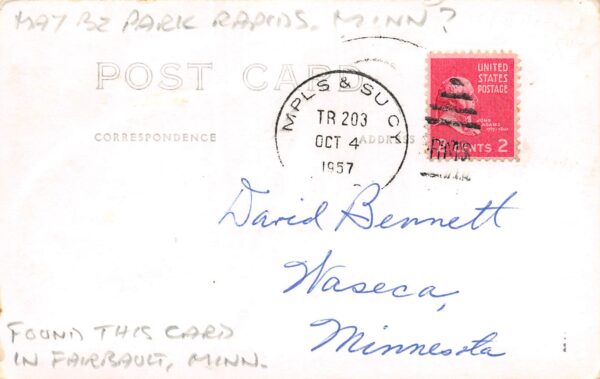 MAY BE PARK RAPIDS, MINN?
POST CARD
CORRESPONDENCE
ADDRESS
MPLS & SU CY
TR 203
OCT 4
1957
UNITED
STATES
POSTAGE
JOHN
ADAMS
CENTS 2
RMS
David Bennett
Waseca,
Minnesota
FOUND THIS CARD
IN FAIRBAULT, MINN.